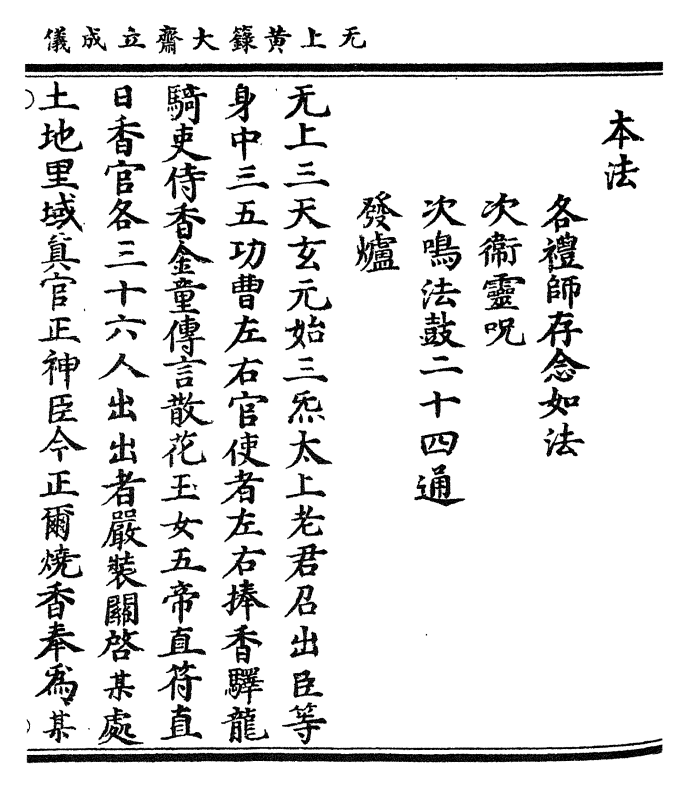 无上黄籙大齋立成儀
本法
各禮師存念如法
次衞靈呪
次鳴法鼓二十四通
發爐
无上三天玄元始三炁太上老君召出臣等
身中三五功曹左右官使者左右捧香驛龍
騎吏侍香金童傳言散花玉女五帝直符直
日香官各三十六人出出者嚴裝關啓某處
土地里域眞官正神臣今正爾燒香奉爲某